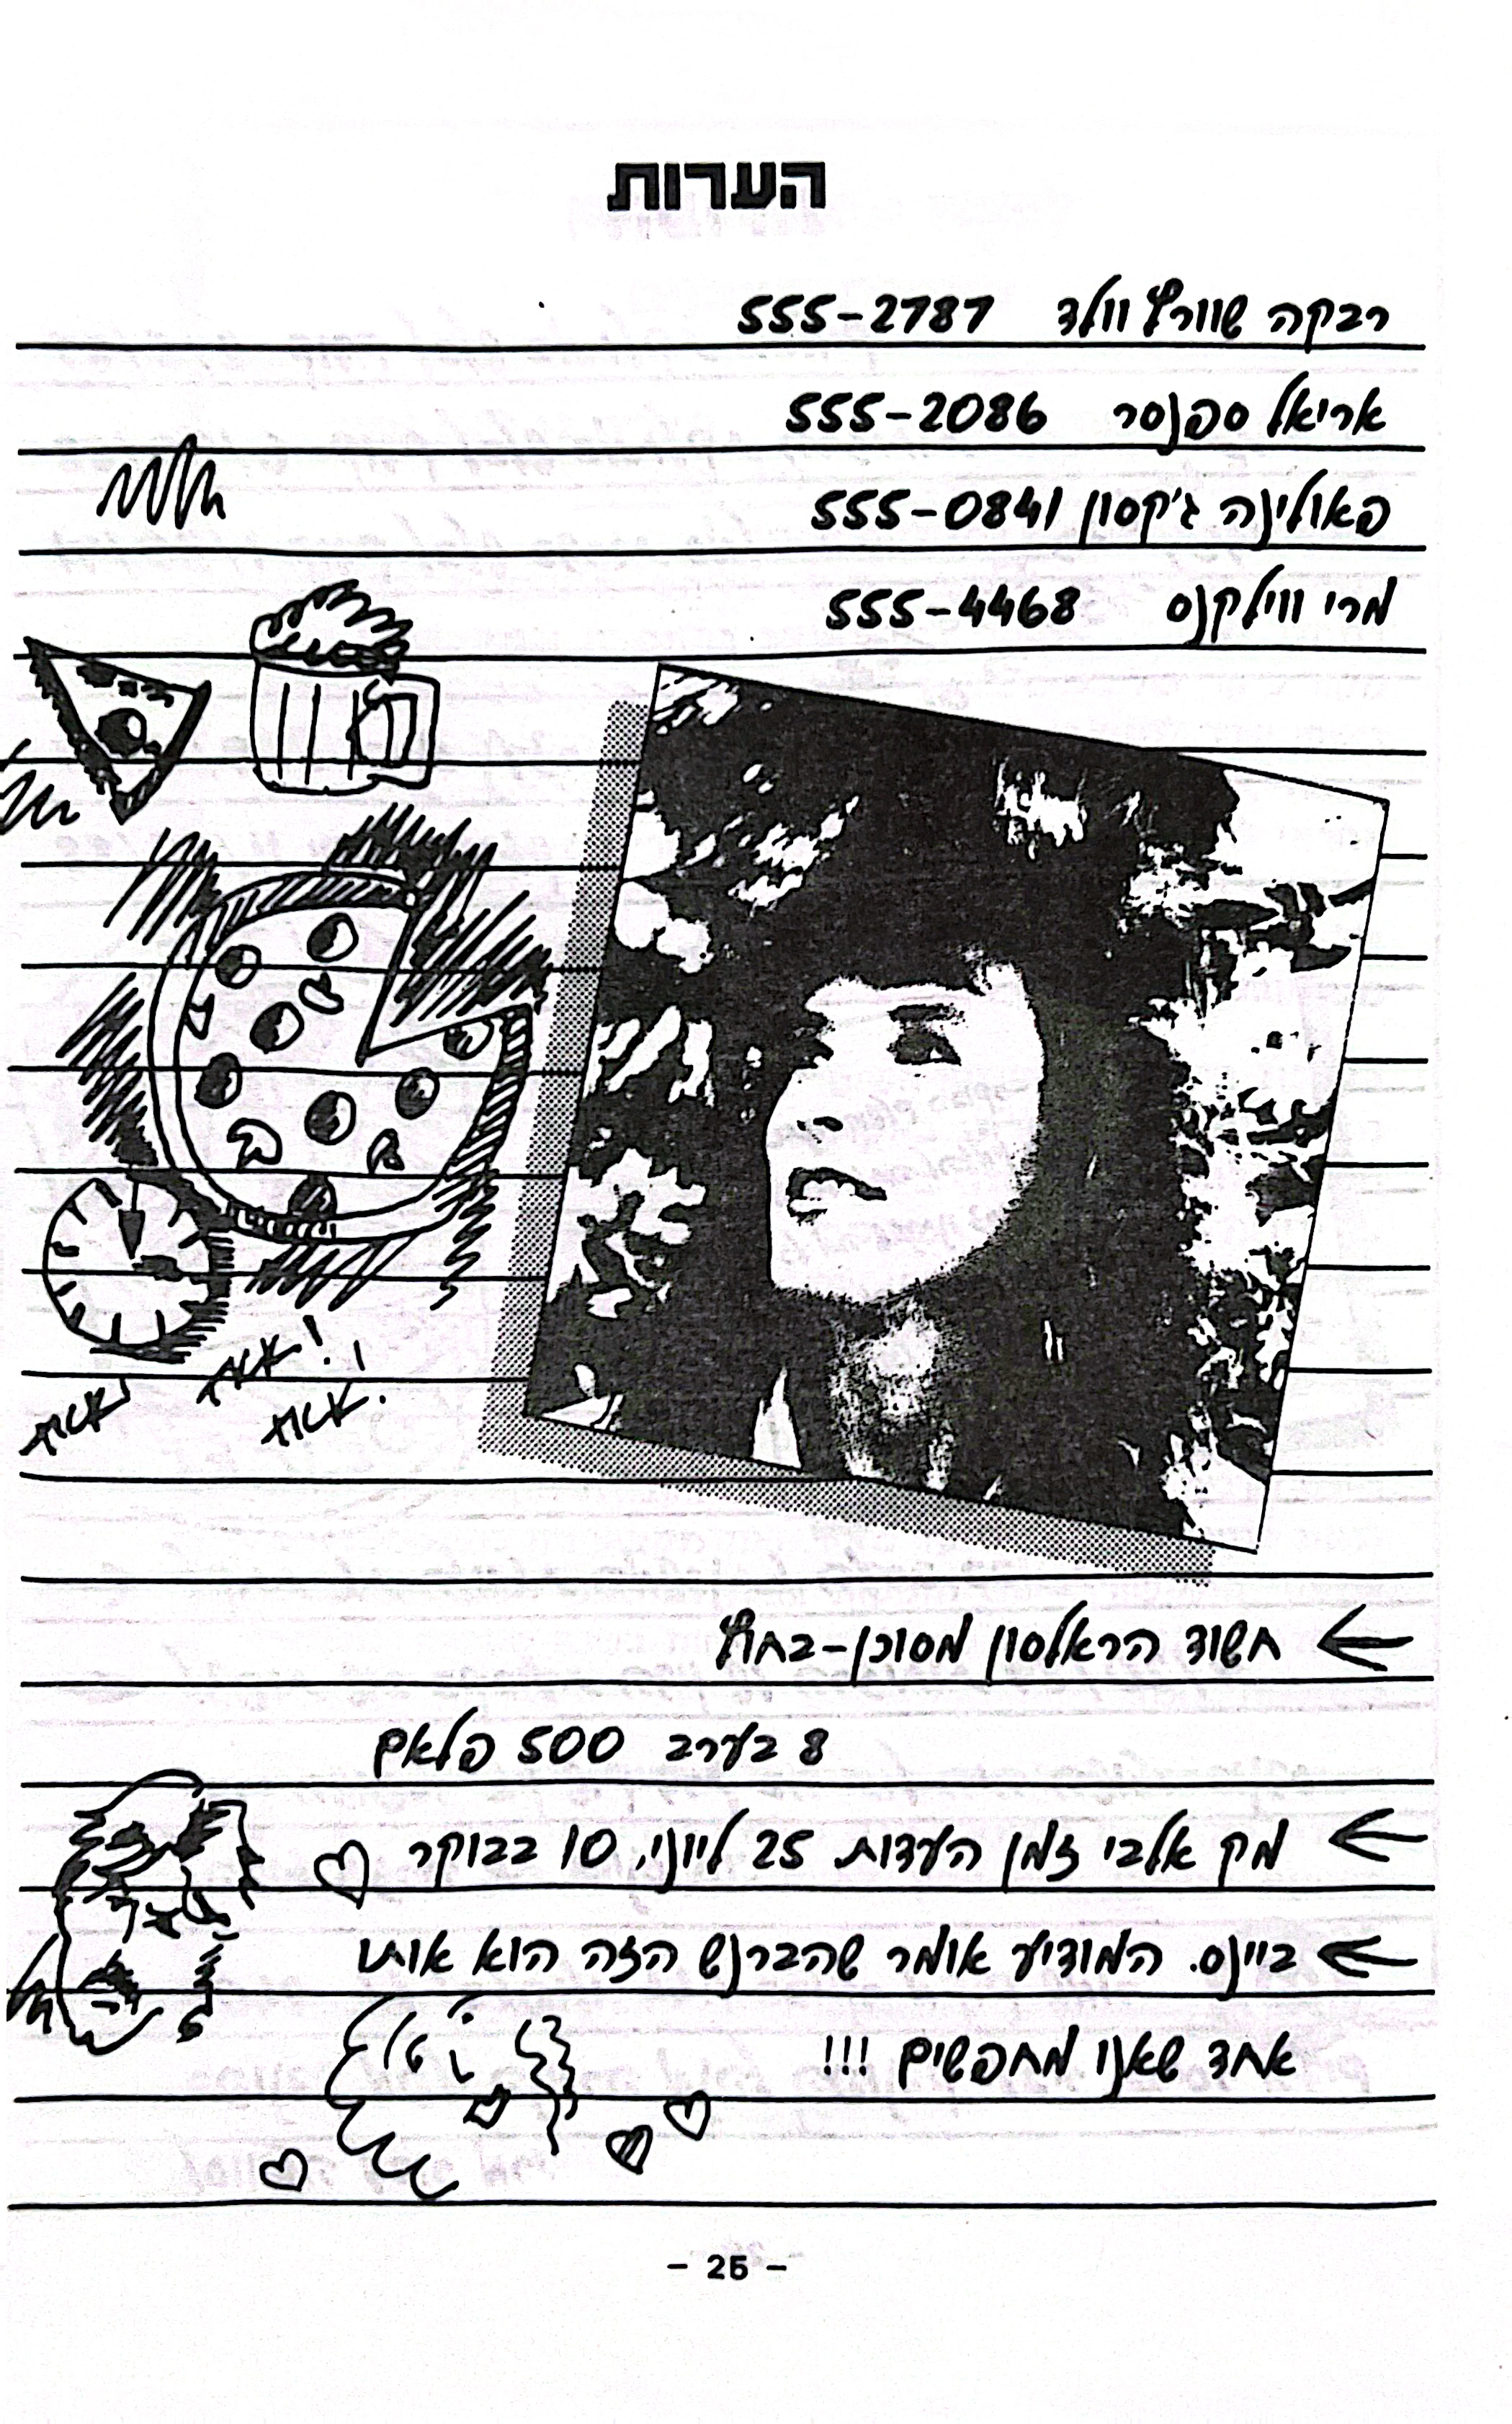 הערות
רבקה שוורץ וולד 555-2787
אריאל ספנסר 555-2086
פאולינה ג'קסון 555-0841
מרי ווילקנס 555-4468
חשוד הראלסון מסוכן-בחוץ
8 בערב 500 פלאם
מק אלבי זמן העדות 25 ליוני, 10 בבוקר
ביינס. המודיע אומר שהברנש הזה הוא אותו
אחד שאנו מחפשים !!!
- 25 -